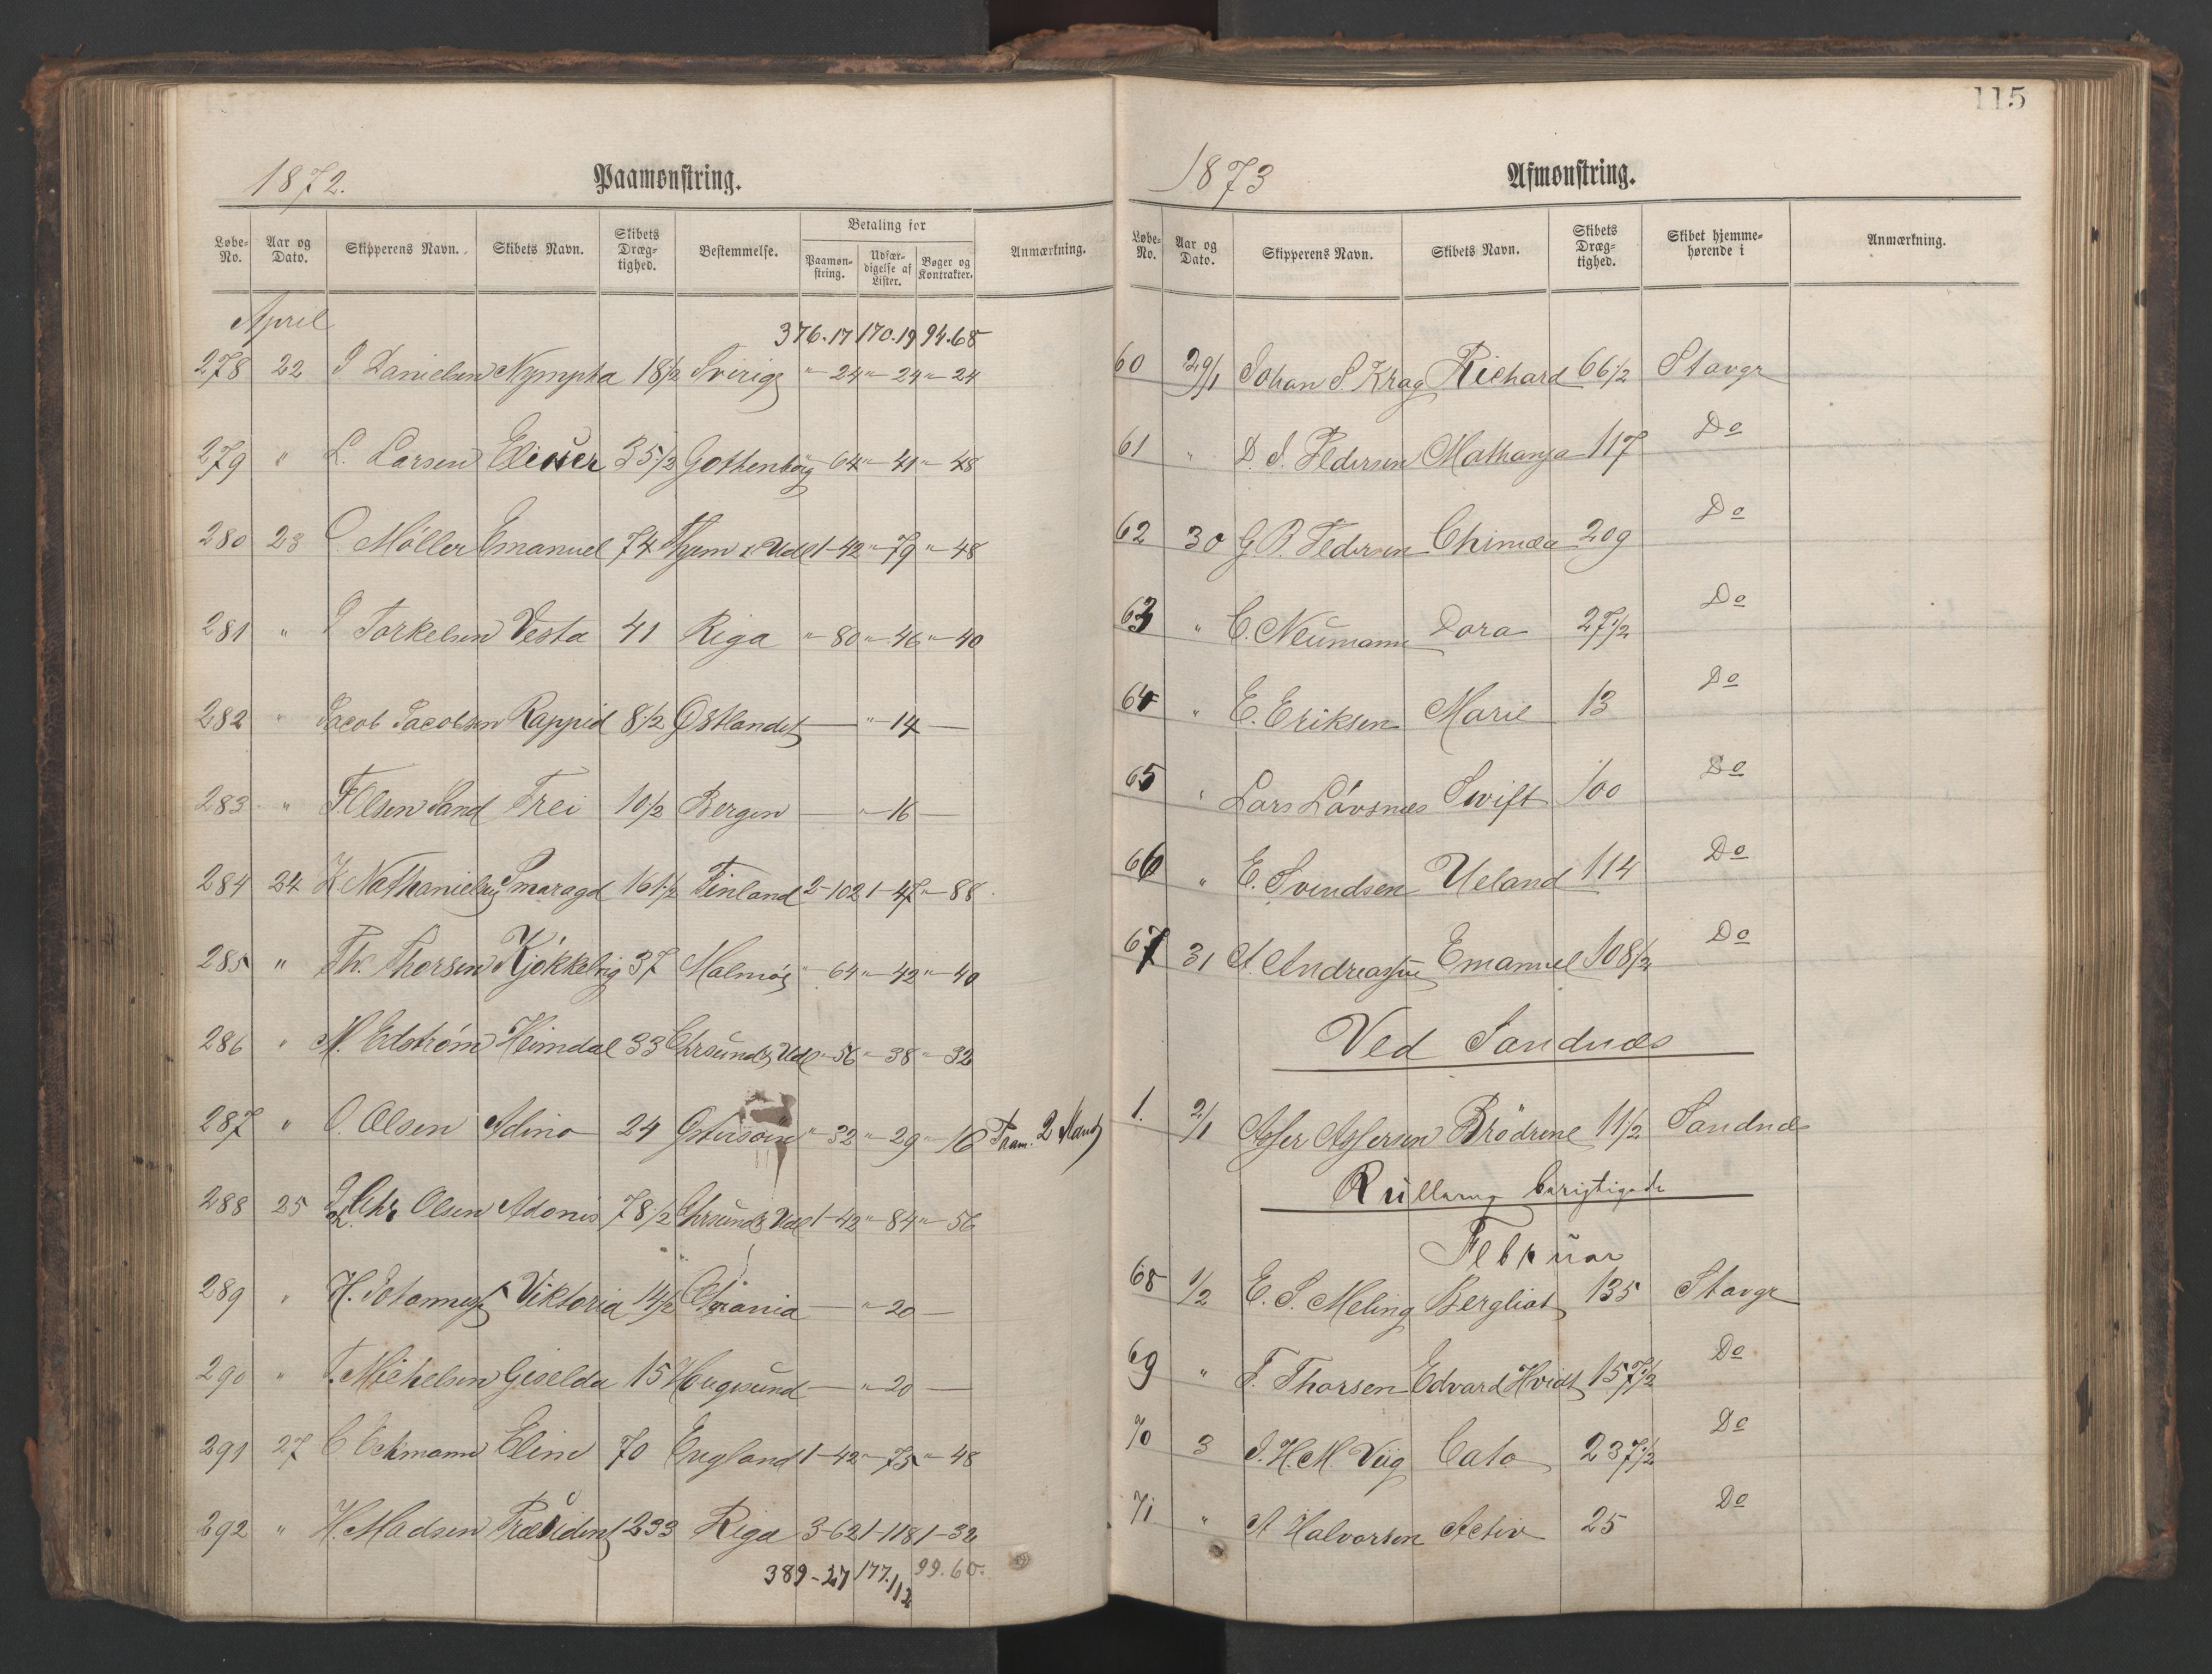 1872. Paamønstring.
Løbe-No. Aar og Dato. Skipperens Navn. Skibets Navn. Skibets Dræg-tighed. Bestemmelse. Betaling for Paamøn-string. Udfær-digelse af Lister. Bøger og Kontrakter. Anmærkning.
April 376.17 170.19 94.68
278 22 Danielsen Nympha 18 1/2 Sverig " - 24 " - 24 " - 24
279 " L. Larsen 35 1/2 Gothenborg " - 64 " - 41 " - 48
280 23 Møller Emanuel 74 & Udl 1 - 42 " - 79 " - 48
281 " Torkelsen Vesta 41 Riga " - 80 " - 46 " - 40
282 " Jacob Jacobsen Rappid 8 1/2 Østlandet — " - 14 —
283 " T. Olsen Sand Frei 10 1/2 Bergen — " - 16 —
284 24 Nathanielsen Smaragd 161 1/2 Finland 2 - 102 1 - 47 " - 88
285 " Th. Thorsen Kjøkkelvig 37 Malmø " - 64 " - 42 " - 40
286 " N. Edstrøm Heimdal 33 Chrsund & Udl " - 56 " - 38 " - 32
287 " O. Olsen Adino 24 " - 32 " - 29 " - 16 Fram. 2 Mand
288 25 Chr. Olsen Adonis 78 1/2 Chrsund & Udl 1 - 42 " - 84 " - 56
289 " H. Johannes Viktoria 14 1/2 Chrania — " - 20 —
290 " T. Michelsen Giselda 15 Haugesund — " - 20 —
291 27 C. Eckmann Eline 70 England 1 - 42 " - 75 " - 48
292 " H. Madsen Præsident 233 Riga 3 - 62 1 - 118 1 - 32
389 - 27 177.112 99.60.
115
1873 Afmønstring.
Løbe-No. Aar og Dato. Skipperens Navn. Skibets Navn. Skibets Dræg-tighed. Skibet hjemme-hørende i Anmærkning.
60 29/1 Johan S. Krag Richard 66 1/2 Stavgr
61 " D. S. Pedersen Mathanja 117 Do
62 30 G. P. Pedersen Chimæa 209 Do
63 " C. Neumann Dora 27 1/2 Do
64 " E. Eriksen Marie 13 Do
65 " Lars Løvsnæs Swift 100 Do
66 " E. Svendsen Ueland 114 Do
67 31 A. Andreassen Emanuel 108 1/2 Do
Ved Sandnæs
1. 2/1 Asser Assersen Brødrene 11 1/2 Sandnæs
Rullerne berigtigede
Februar
68 1/2 E. S. Meling Bergliot 135 Stavgr
69 " T. Thorsen Edvard Hvidt 157 1/2 Do
70 3 J. H. M. Viig Cato 237 1/2 Do
71 " A Halvorsen Activ 25 Do